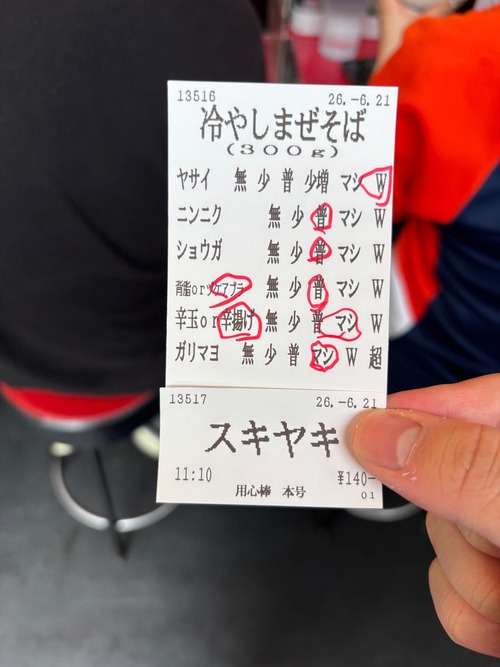 13516 26.-6.21
冷やしまぜそば
(300g)
ヤサイ 無 少 普 少増 マシ W
ニンニク 無 少 普 マシ W
ショウガ 無 少 普 マシ W
背脂orツケアブラ 無 少 普 マシ W
辛玉or辛揚げ 無 少 普 マシ W
ガリマヨ 無 少 普 マシ W 超
13517 26.-6.21
スキヤキ
11:10 ¥140-
用心棒 本号 01